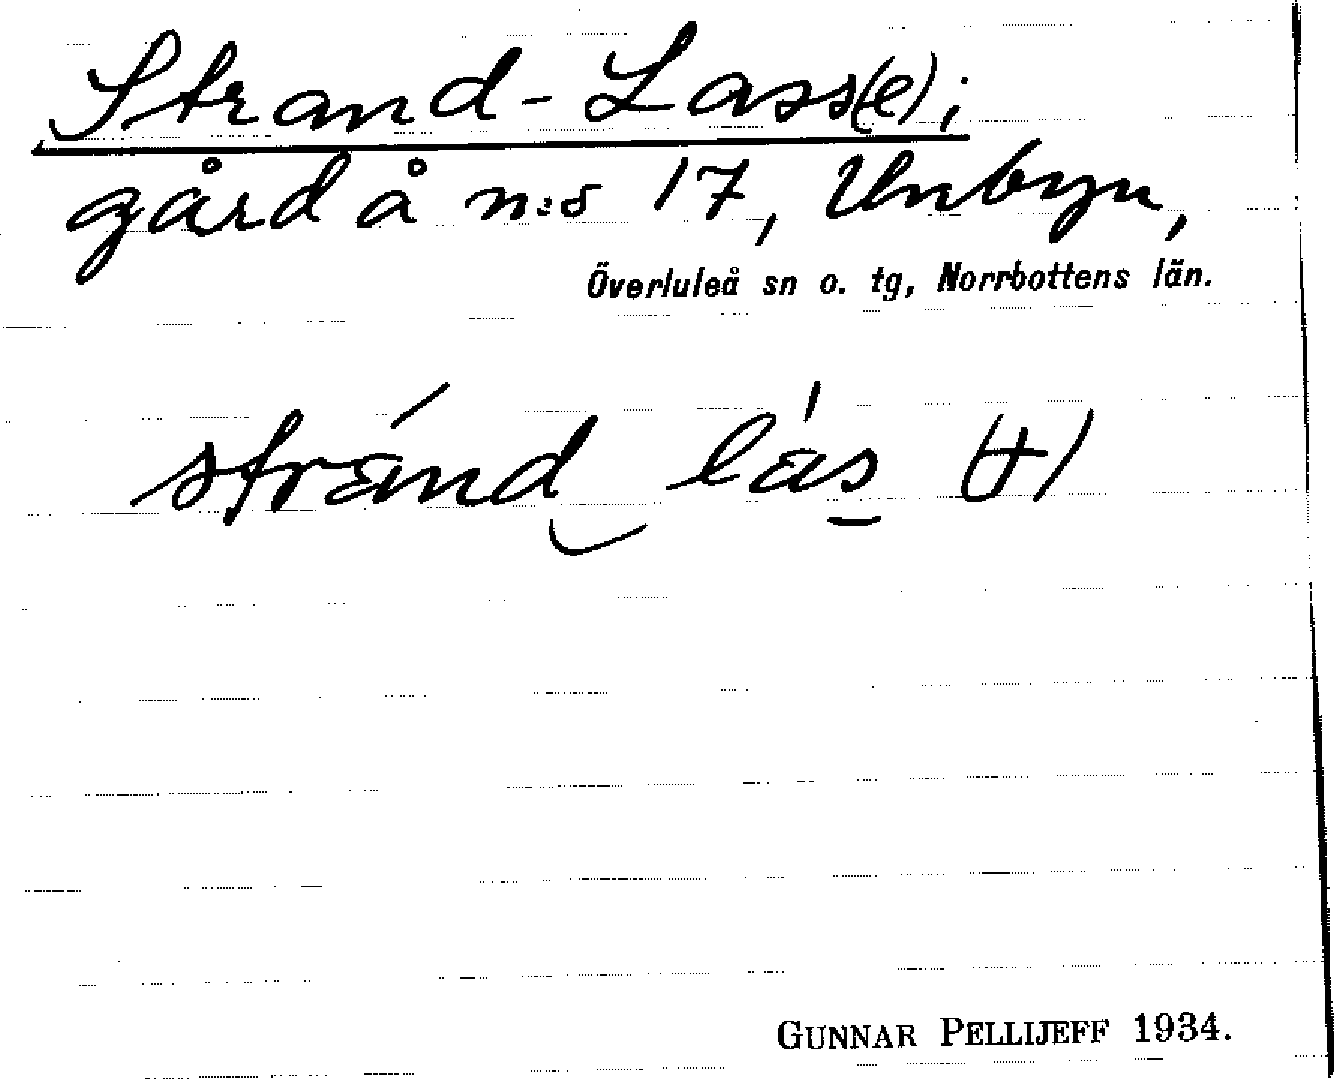 Strand-Lass(e);
gård å n:o 17, Unbyn,
Överluleå sn o. tg, Norrbottens län.
stránd‿ lás̠ (+)
GUNNAR PELLIJEFF 1934.